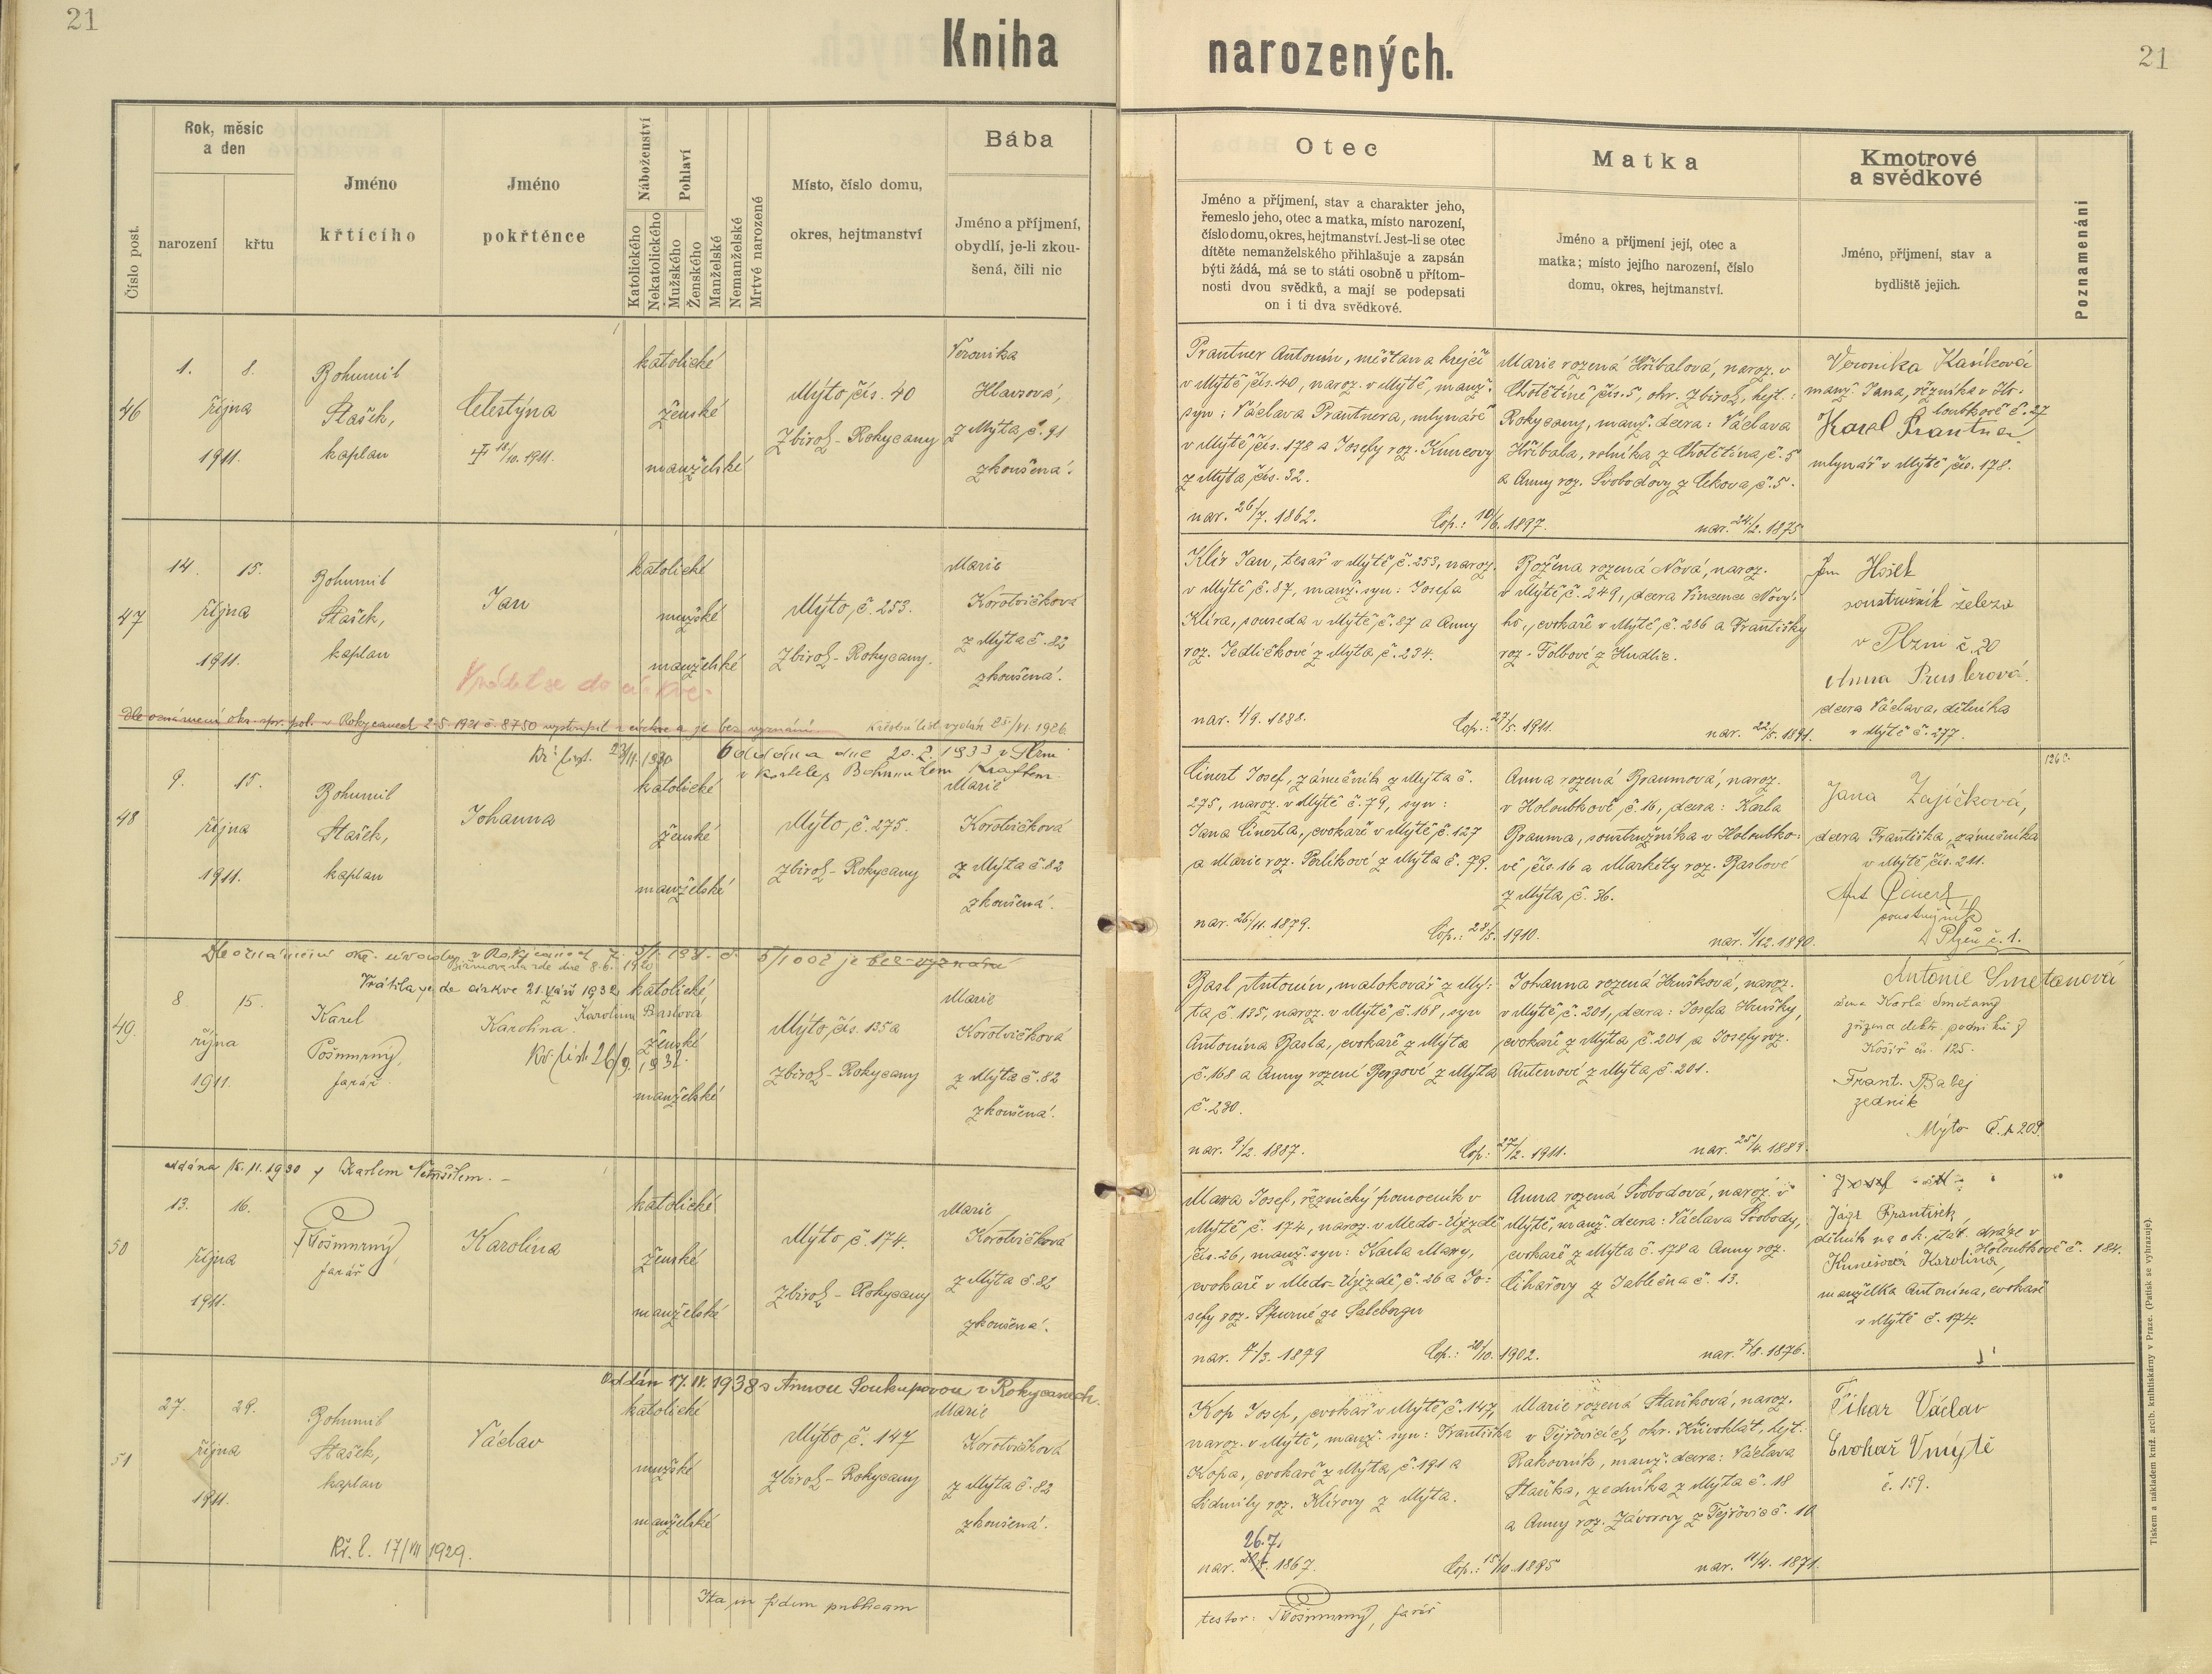 21
Kniha
narozených.
21
Číslo post.
Rok, měsíc
a den
narození
křtu
Jméno
křtícího
Jméno
pokřtěnce
Náboženství
Katolického
Nekatolického
Pohlaví
Mužského
Ženského
Manželské
Nemanželské
Mrtvě narozené
Místo, číslo domu,
okres, hejtmanství
Bába
Jméno a příjmení,
obydlí, je-li zkou-
šená, čili nic
Otec
Jméno a příjmení, stav a charakter jeho,
řemeslo jeho, otec a matka, místo narození,
číslo domu, okres, hejtmanství. Jest-li se otec
dítěte nemanželského přihlašuje a zapsán
býti žádá, má se to státi osobně u přítom-
nosti dvou svědků, a mají se podepsati
on i ti dva svědkové.
Matka
Jméno a příjmení její, otec a
matka; místo jejího narození, číslo
domu, okres, hejtmanství.
Kmotrové
a svědkové
Jméno, příjmení, stav a
bydliště jejich.
Poznamenání
46
1. 8.
října
1911.
Bohumil
Stašek,
kaplan
Celestýna
18/10. 1911.
katolické
ženské
manželské
Mýto čís. 40
Zbiroh - Rokycany
Veronika
Hlavsová,
z Mýta č. 91
zkoušená.
Prantner Antonín, měšťan a krejčí
v Mýtě čís. 40, naroz. v Mýtě, manž.
syn: Václava Prantnera, mlynáře
v Mýtě čís. 178 a Josefy roz. Kuncovy
z Mýta čís. 32.
nar. 26/7. 1862.
Cop.: 10/6. 1897.
Marie rozená Hříbalová, naroz. v
Chotětíně čís. 5, okr. Zbiroh, hejt.:
Rokycany, manž. dcera: Václava
Hříbala, rolníka z Chotětína č. 5
a Anny roz. Svobodovy z Cekova č. 5.
nar. 24/2. 1875
Veronika Kasíková
manž. Jana, řezníka v Ho-
loubkově č. 27
Karel Prantner
mlynář v Mýtě čís. 178.
47
14. 15.
října
1911.
Bohumil
Stašek,
kaplan
Jan
katolické
mužské
manželské
Mýto č. 253.
Zbiroh - Rokycany.
Marie
Korotvičková
z Mýta č. 82
zkoušená.
Klír Jan, tesař v Mýtě č. 253, naroz.
v Mýtě č. 87, manž. syn: Josefa
Klíra, souseda v Mýtě č. 87 a Anny
roz. Jedličkové z Mýta č. 234.
nar. 1/9. 1888.
Cop.: 27/5. 1911.
Božena rozená Nová, naroz.
v Mýtě č. 249, dcera Vincence Nový-
ho, cvokaře v Mýtě č. 286 a Františky
roz. Folbové z Hudlic.
nar. 22/5. 1891.
soustružník železa
v Plzni č. 20
dcera Václava, dělníka
v Mýtě č. 277.
Vrátil se do církve.
Dle oznámení okr. spr. pol. v Rokycanech 2.5. 1921 č. 8750 vystoupil z církve a je bez vyznání.
Křestní list vydán 25/VI. 1926.
48
9. 15.
října
1911.
Bohumil
Stašek,
kaplan
Johanna
Oddána dne 20. 1933 v Plzni
v kostele s Bohumilem Kraftem.
katolické
ženské
manželské
Mýto č. 275.
Zbiroh - Rokycany
Marie
Korotvičková
z Mýta č. 82
zkoušená.
Cinert Josef, zámečník z Mýta č.
275, naroz. v Mýtě č. 79, syn:
Jana Cinerta, cvokaře v Mýtě č. 127
a Marie roz. Perlíkové z Mýta č. 79.
nar. 26/11. 1879.
Cop.: 28/5. 1910.
Anna rozená Braumová, naroz.
v Holoubkově č. 16, dcera: Karla
Brauma, soustružníka v Holoubko-
vě čís. 16 a Markéty roz. Baslové
z Mýta č. 36.
nar. 1/12. 1890.
Jana Zajíčková,
dcera Františka, zámečníka
v Mýtě čís. 211.
Ant Cinert
soustružník
Plzeň č. 1.
49.
8. 15.
října
1911.
Karel
Pošmurný,
farář.
Vrátila se do církve 21. září 1932
Karolina Baslová
Karolina.
Kř. list 26/9. 1932.
katolické,
ženské
manželské
Mýto čís. 135a
Zbiroh - Rokycany
Marie
Korotvičková
z Mýta č. 82
zkoušená.
Basl Antonín, malokovář z Mý-
ta č. 135, naroz. v Mýtě č. 168, syn
Antonína Basla, cvokaře z Mýta
č. 168 a Anny rozené Bergové z Mýta
č. 230.
nar. 9/2. 1887.
Cop.: 27/2. 1911.
Johanna rozená Hrušková, naroz.
v Mýtě č. 201, dcera: Josefa Hrušky,
cvokaře z Mýta č. 201 a Josefy roz.
Autenové z Mýta č. 201.
nar. 25/4. 1889.
Antonie Smetanová
žena Karla Smetany
zřízence elektr. podniků z
Košíř čís. 125.
Frant. Balej
zedník
Mýto č. 209.
50
oddána 15. 11. 1930 s Karlem
13. 16.
října
1911.
Pošmurný,
farář
Karolína
katolické
ženské
manželské
Mýto č. 174.
Zbiroh - Rokycany
Marie
Korotvičková
z Mýta č. 82
zkoušená.
Mara Josef, řeznický pomocník v
Mýtě č. 174, naroz. v Medo-Újezdě
čís. 26, manž. syn: Karla Mary,
cvokaře v Medo-Újezdě č. 26 a Jo-
sefy roz. Spurné ze Salcburgu
nar. 7/3. 1879
Cop.: 20/10. 1902.
Anna rozená Svobodová, naroz. v
Mýtě, manž. dcera: Václava Svobody,
cvokaře z Mýta č. 178 a Anny roz.
Cihařovy z Jablečna č. 13.
nar. 7/8. 1876.
Jágr František
dělník na c. k. stát. dráze v
Holoubkově č. 184.
Kunešová Karolina,
manželka Antonína, cvokaře
v Mýtě č. 174.
51
27. 29.
října
1911.
Bohumil
Stašek,
kaplan
Václav
Oddán 17. IV. 1938 s Annou Soukupovou v Rokycanech.
katolické
mužské
manželské
Mýto č. 147
Zbiroh - Rokycany
Marie
Korotvičková
z Mýta č. 82
zkoušená.
Kř. l. 17/VII 1929.
Kop Josef, cvokař v Mýtě č. 147,
naroz. v Mýtě, manž. syn: Františka
Kopa, cvokaře z Mýta č. 191 a
Lidmily roz. Klírovy z Mýta.
26.7.
nar. 1867.
Cop.: 15/10. 1895
Marie rozená Staňková, naroz.
v Tejřovicích, okr. Křivoklát, hejt.
Rakovník, manž. dcera: Václava
Staňka, zedníka z Mýta č. 18
a Anny roz. Závorovy z Tejřovic č. 10
nar. 11/4. 1871.
Cihar Václav
Cvokař v Mýtě
č. 159.
Ita in fidem publicam
testor: Pošmurný, farář
Tiskem a nákladem kníž. arcib. knihtiskárny v Praze. (Patisk se vyhrazuje).